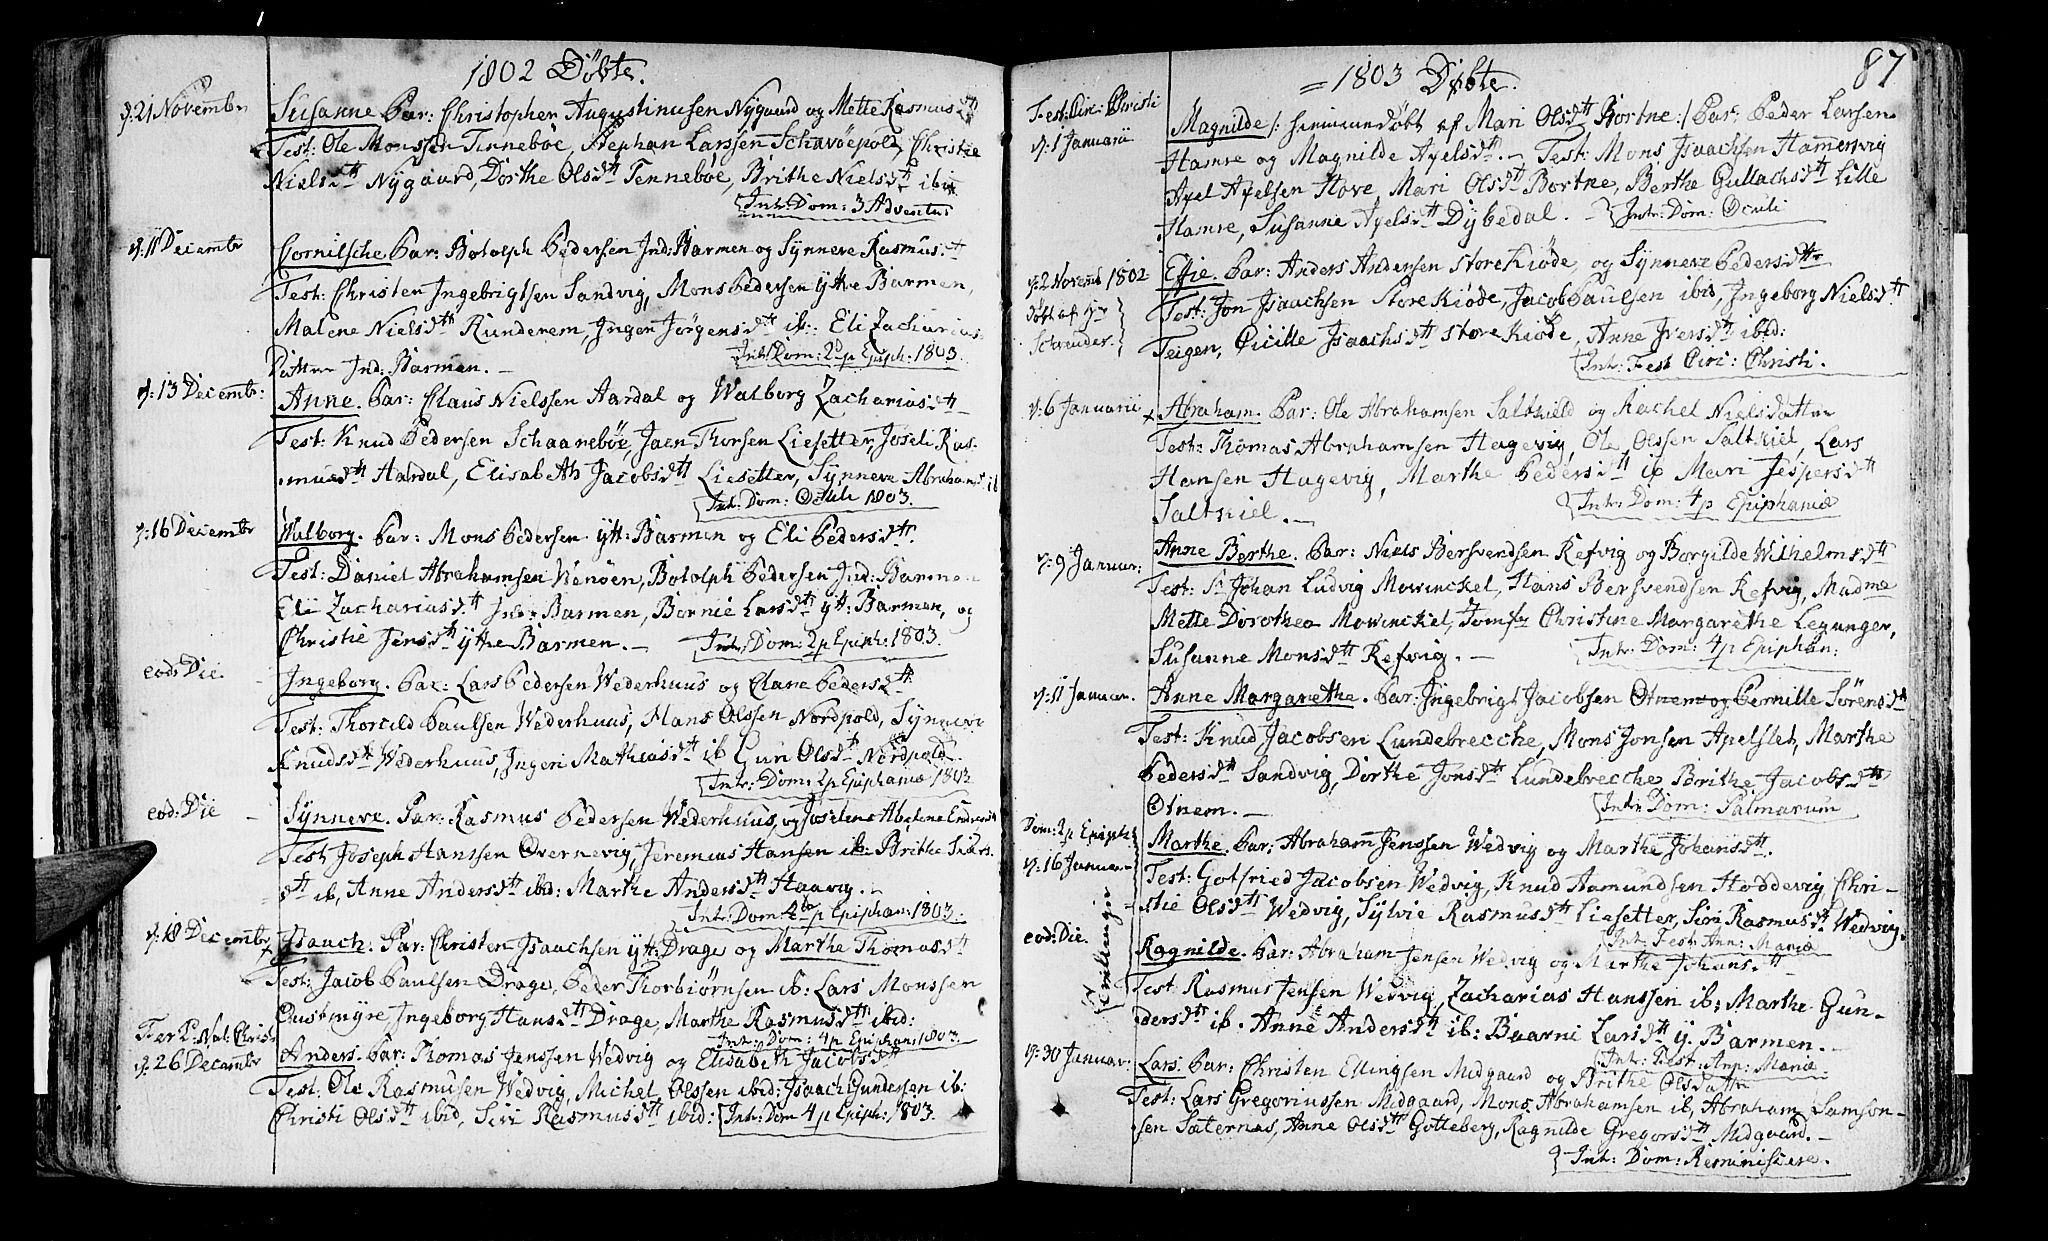 1802 Döbte.
d: 21 Novembr
Susanne Par: Christopher Augustinusen Nÿgaard og Mette Rasmusdtt
Test: Ole Monssen Tennebõe, Stephan Larssen Schavöepold, Christie
Nielsdtt Nÿgaard, Dorthe Olsdtt Tennebõe, Brithe Nielsdtt ibid
Intr: Dom: 3 Adventus
d: 11 Decembr
Pernilsche Par: Botolph Pedersen Ind: Barmen og Sÿnneve Rasmusdtt
Test: Christen Ingebrigtsen Sandvig, Mons Pedersen ÿttre Barmen,
Malene Nielsdtt Runderem, Inger Jörgensdtt ib: Eli Zacharias
Datter Ind: Barmen. –
Intr: Dom: 2 p Epiph: 1803.
d: 13 Decembr:
Anne. Par: Claus Nielssen Aardal og Walborg Zachariasdtt
Test: Knud Pedersen Schaanebõe, Jaen Thorsen Liesetter, Joseli Ras-
musdtt Aardal, Elisabeth Jacobsdtt Liesetter, Sÿnneve Abrahamsd ib
Intr: Dom: Oculi 1803.
d: 16 Decembr
Walborg. Par: Mons Pedersen ÿtt: Barmen og Eli Pedersdtt.
Test: Daniel Abrahamsen Wenõen, Botolph Pedersen Ind: Barmen
Eli Zachariasdtt Ind: Barmen, Bornie Larsdtt ÿtt: Barmen, og
Christie Jensdtt ÿttre Barmen. –
Intr: Dom: 2 p Epiph: 1803.
eod: Die.
Ingeborg. Par: Lars Pedersen Wederhuus og Clare Pedersdtt.
Test: Thorild Paulsen Wederhuus, Hans Olssen Nordpold, Sÿnneve
Knudsdtt Wederhuus, Ingeri Mathiasdtt ib Guri Olsdtt Nordpold.
Intr: Dom: 2 p Epiphaniæ 1803
eod: Die
Sÿnneve. Par: Rasmus Pedersen Wederhuus, og Joseline
Test Joseph Hanssen Overnevig, Jeremias Hansen ib: Brithe Sjurs-
dtt ib, Anne Andersdtt ibid: Marthe Andersdtt Haavig. –
Intr: Dom 4 p Epiphan: 1803.
d: 18 Decembr
Isaach. Par: Christen Isaachsen ÿtt: Drage og Marthe Thomasdtt
Test: Jacob Paulsen Drage, Peder Thorbiörnsen ib: Lars Monssen
Oustmÿre Ingeborg Hansdtt Drage, Marthe Rasmusdtt ibid:
Intr: Dom: 4 p Epiphan: 1803
Fer 2: Nat: Christi
d: 26 Decembr
Anders. Par: Thomas Jenssen Wedvig og Elisabeth Jacobsdtt
Test: Ole Rasmusen Wedvig, Michel Olssen ibid: Isaach Gundersen ib:
Christi Olsdtt ibid, Siri Rasmusdtt ibid:
Intr: Dom 4 p Epiph: 1803.
87
= 1803 Döbte.
Fest: Circ: Christi
d: 1 Januarii
Magnilde /: hiemmedöbt af Mari Olsdtt Bortne:/ Par: Peder Larsen
Hamre og Magnilde Axelsdtt. – Test: Mons Isaachsen Hamersvig
Axel Axelsen Hove, Mari Olsdtt Bortne, Berthe Gullachsdtt Lille
Hamre, Susanne Axelsdtt Dÿbedal. –
Intr: Dom: Oculi
d: 2 Novemb 1802
Döbt af Hr
Schreuder.
Effie. Par: Anders Andersen Store Kiöde, og Sÿnneve Pedersdtr
Test: Jon Isaachsen Store Kiöde, Jacob Paulsen ibid, Ingeborg Nielsdtt
Teigen, Cicille Isaachsdtt Store Kiöde, Anne Iversdtt ibid:
Intr: Fest Circ: Christi.
d: 6 Januarii
Abraham. Par: Ole Abrahamsen Saltkield og Rachel Nielsdatter
Test: Thomas Abrahamsen Hagevig, Ole Olssen Saltkiel, Lars
Hansen Hagevig, Marthe Pedersdtt ib Mari Jespersdtt
Saltkiel. –
Intr: Dom: 4 p Epiphaniæ
d: 9 Januar:
Anne Berthe. Par: Niels Bersvendsen Refvig og Borgilde Wilhelmsdtt
Test: Sr Johan Ludvig Mowinckel, Hans Bersvendsen Refvig, Madme
Mette Dorothea Mowinckel, Jomfr Christine Margarethe Legunger,
Susanne Monsdtt Refvig. –
Intr: Dom: 4 p Epiphan:
d: 11 Januar.
Anne Margarethe. Par: Ingebrigt Jacobsen Otnem og Pernille Sörensdtt
Test: Knud Jacobsen Lundebrecche, Mons Jonsen Apelset, Marthe
Pedersdtt Sandvig, Dorthe Jonsdtt Lundebrecche Brithe Jacobsdtt
Otnem. –
Intr: Dom: Palmarum
Dom: 2 p Epiph:
d: 16 Januar
Tvillinger
Marthe. Par: Abraham Jenssen Wedvig og Marthe Johansdtt.
Test: Gotfried Jacobsen Wedvig, Knud Aamundsen Hoddevig Chri-
stie Olsdtt Wedvig, Sÿlvie Rasmusdtt Liesetter, Siri Rasmusdtt Wedvig.
Intr. Fest: Ann: Mariæ
eod: Die.
Ragnilde. Par: Abraham Jensen Wedvig og Marthe Johansdtt –
Test Rasmus Jensen Wedvig, Zacharias Hanssen ib: Marthe Gun-
dersdtt ib. Anne Andersdtt ib: Baarni Larsdtt ÿ. Barmen. –
Intr: Fest: Ann: Mariæ.
d: 30 Januar:
Lars. Par: Christen Ellingsen Midgaard og Brithe Olsdatter
Test: Lars Gregoriussen Midgaard, Mons Abrahamsen ib, Abraham Samson-
sen Sæternæs, Anne Olsdtt Gotteberg, Ragnilde Gregorsdtt Midgaard. –
Intr: Dom: Reminiscere.